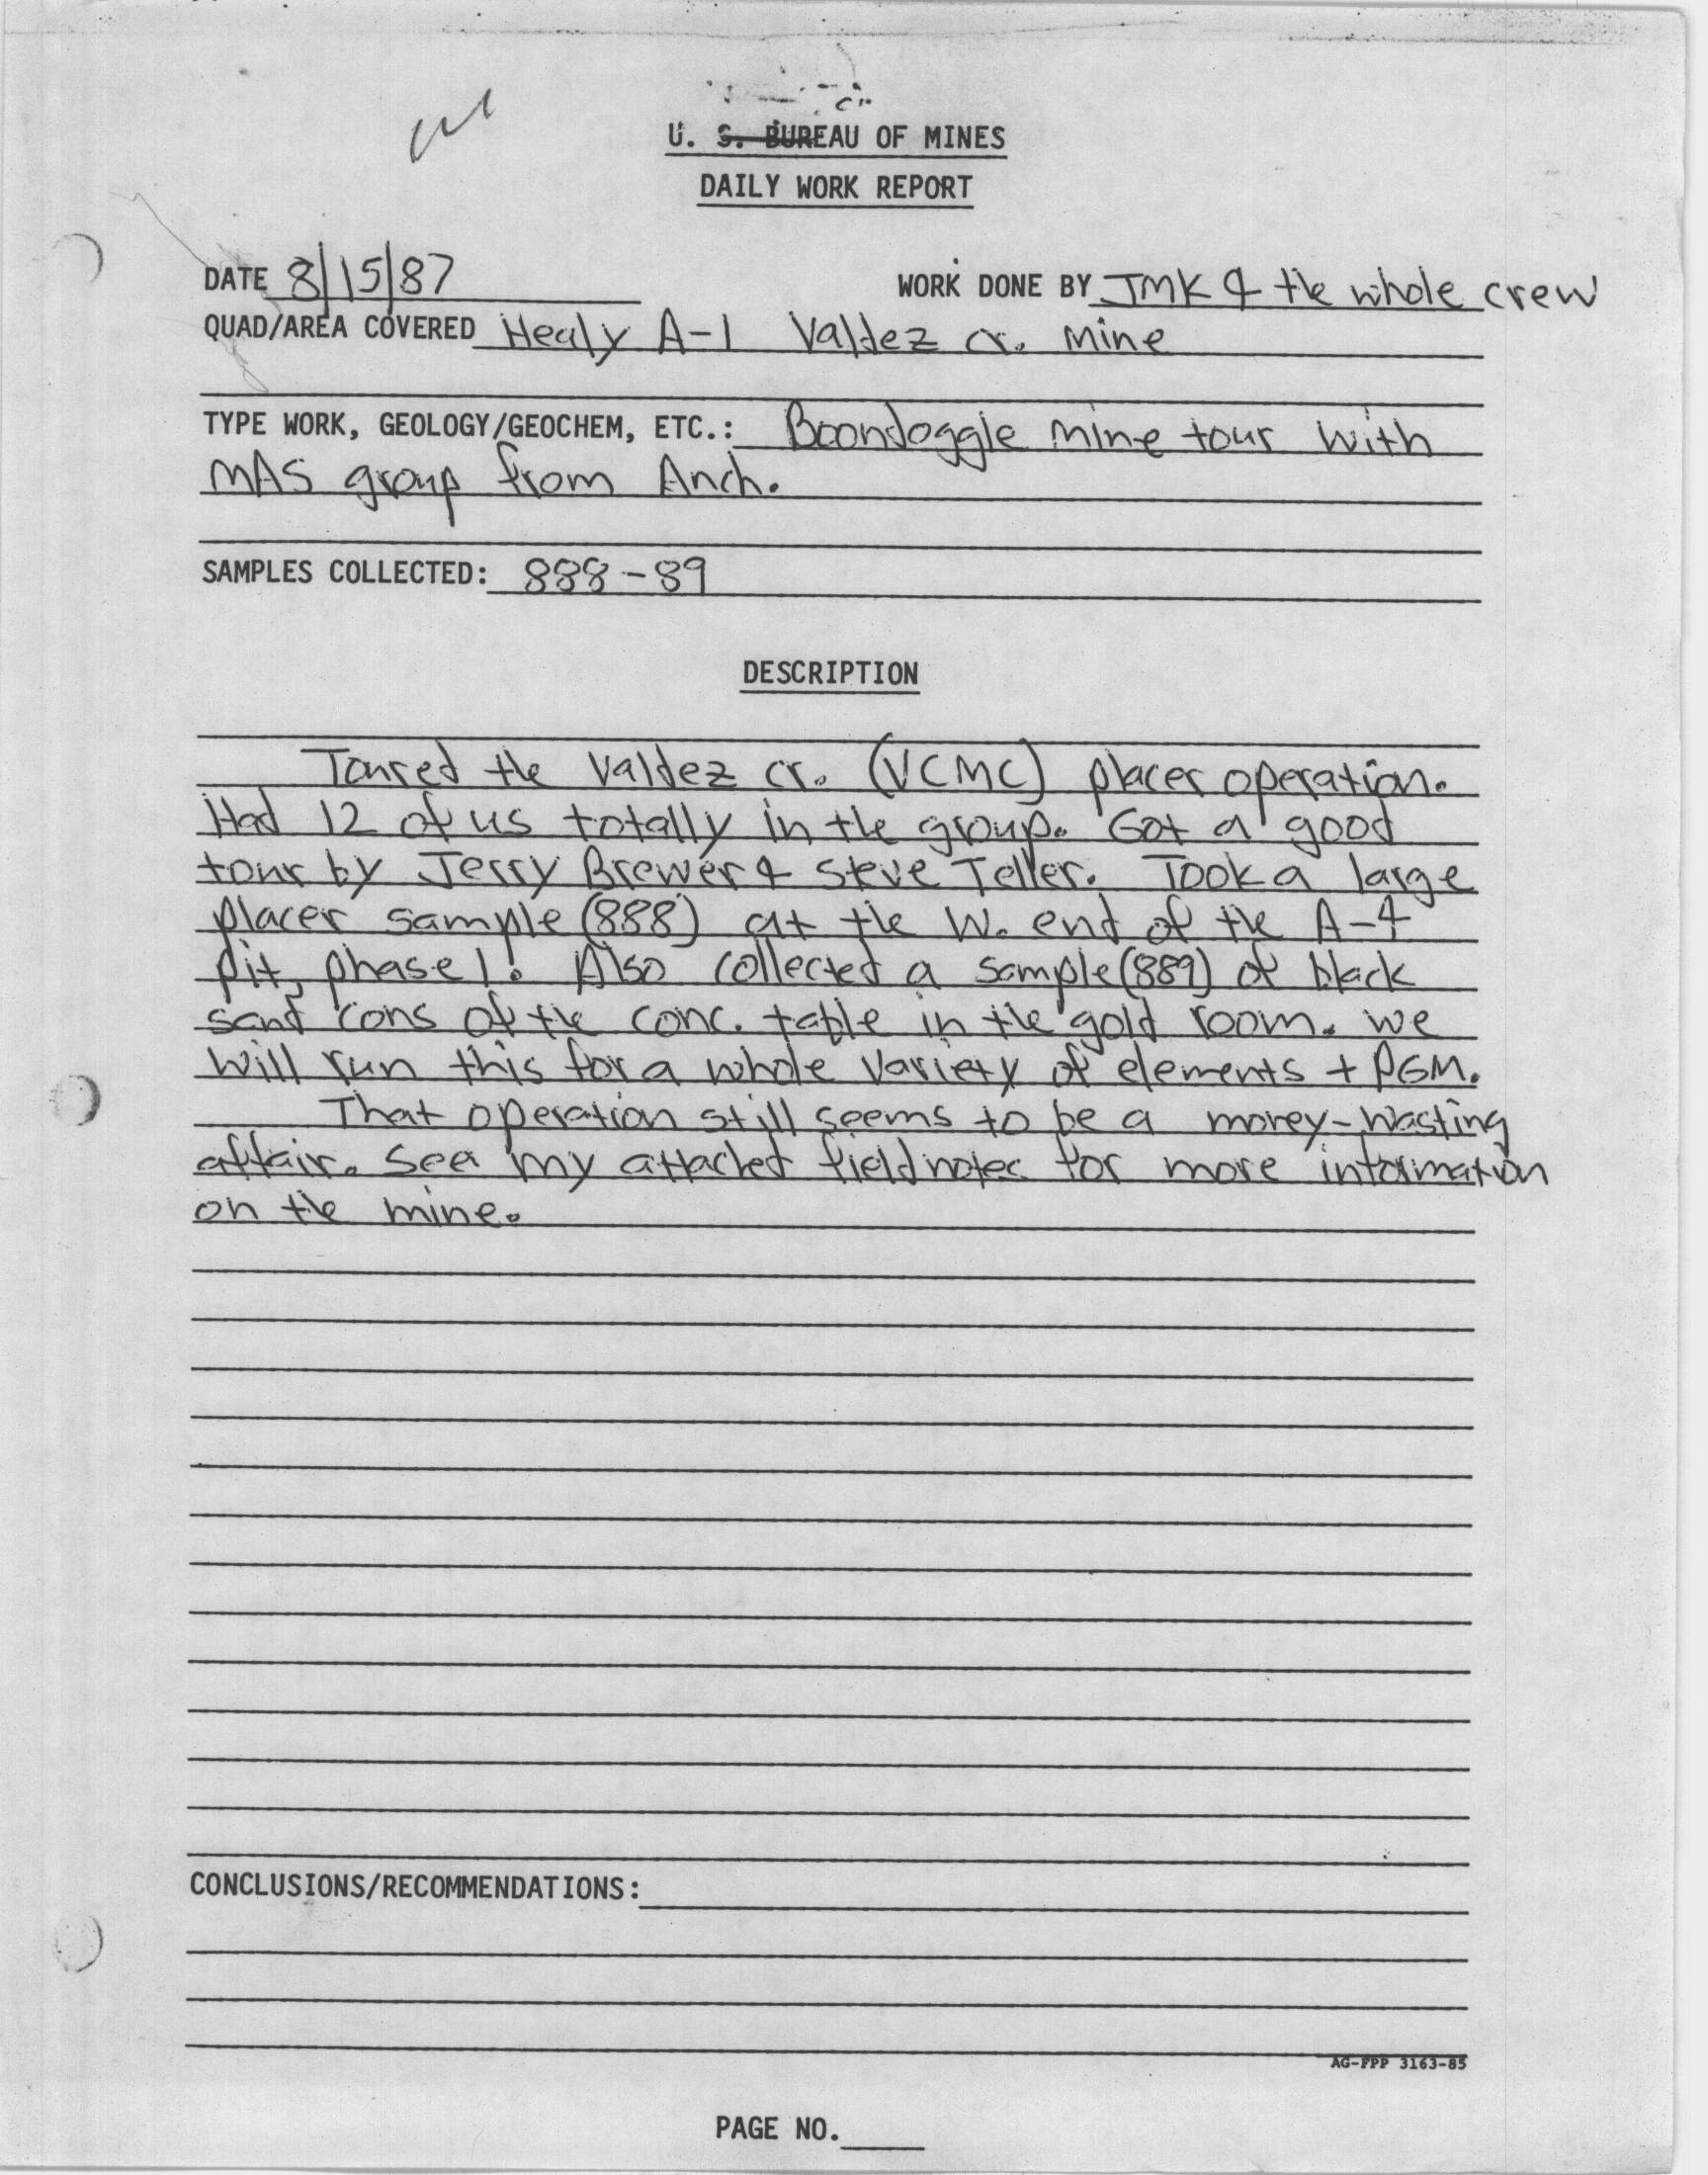 U. S. BUREAU OF MINES
DAILY WORK REPORT
DATE 8/15/87 WORK DONE BY JMK & the whole crew
QUAD/AREA COVERED Healy A-1 Valdez cr. Mine
TYPE WORK, GEOLOGY/GEOCHEM, ETC.: Boondoggle mine tour with
MAS group from Anch.
SAMPLES COLLECTED: 888-89
DESCRIPTION
Toured the Valdez cr. (VCMC) placer operation.
Had 12 of us totally in the group. Got a good
tour by Jerry Brewer & Steve Teller. Took a large
placer sample (888) at the W. end of the A-4
pit, phase 1. Also collected a sample (889) of black
sand cons of the conc. table in the gold room. We
will run this for a whole variety of elements + PGM.
That operation still seems to be a money-wasting
affair. See my attached fieldnotes for more information
on the mine.
CONCLUSIONS/RECOMMENDATIONS:
AG-FPP 3163-85
PAGE NO.